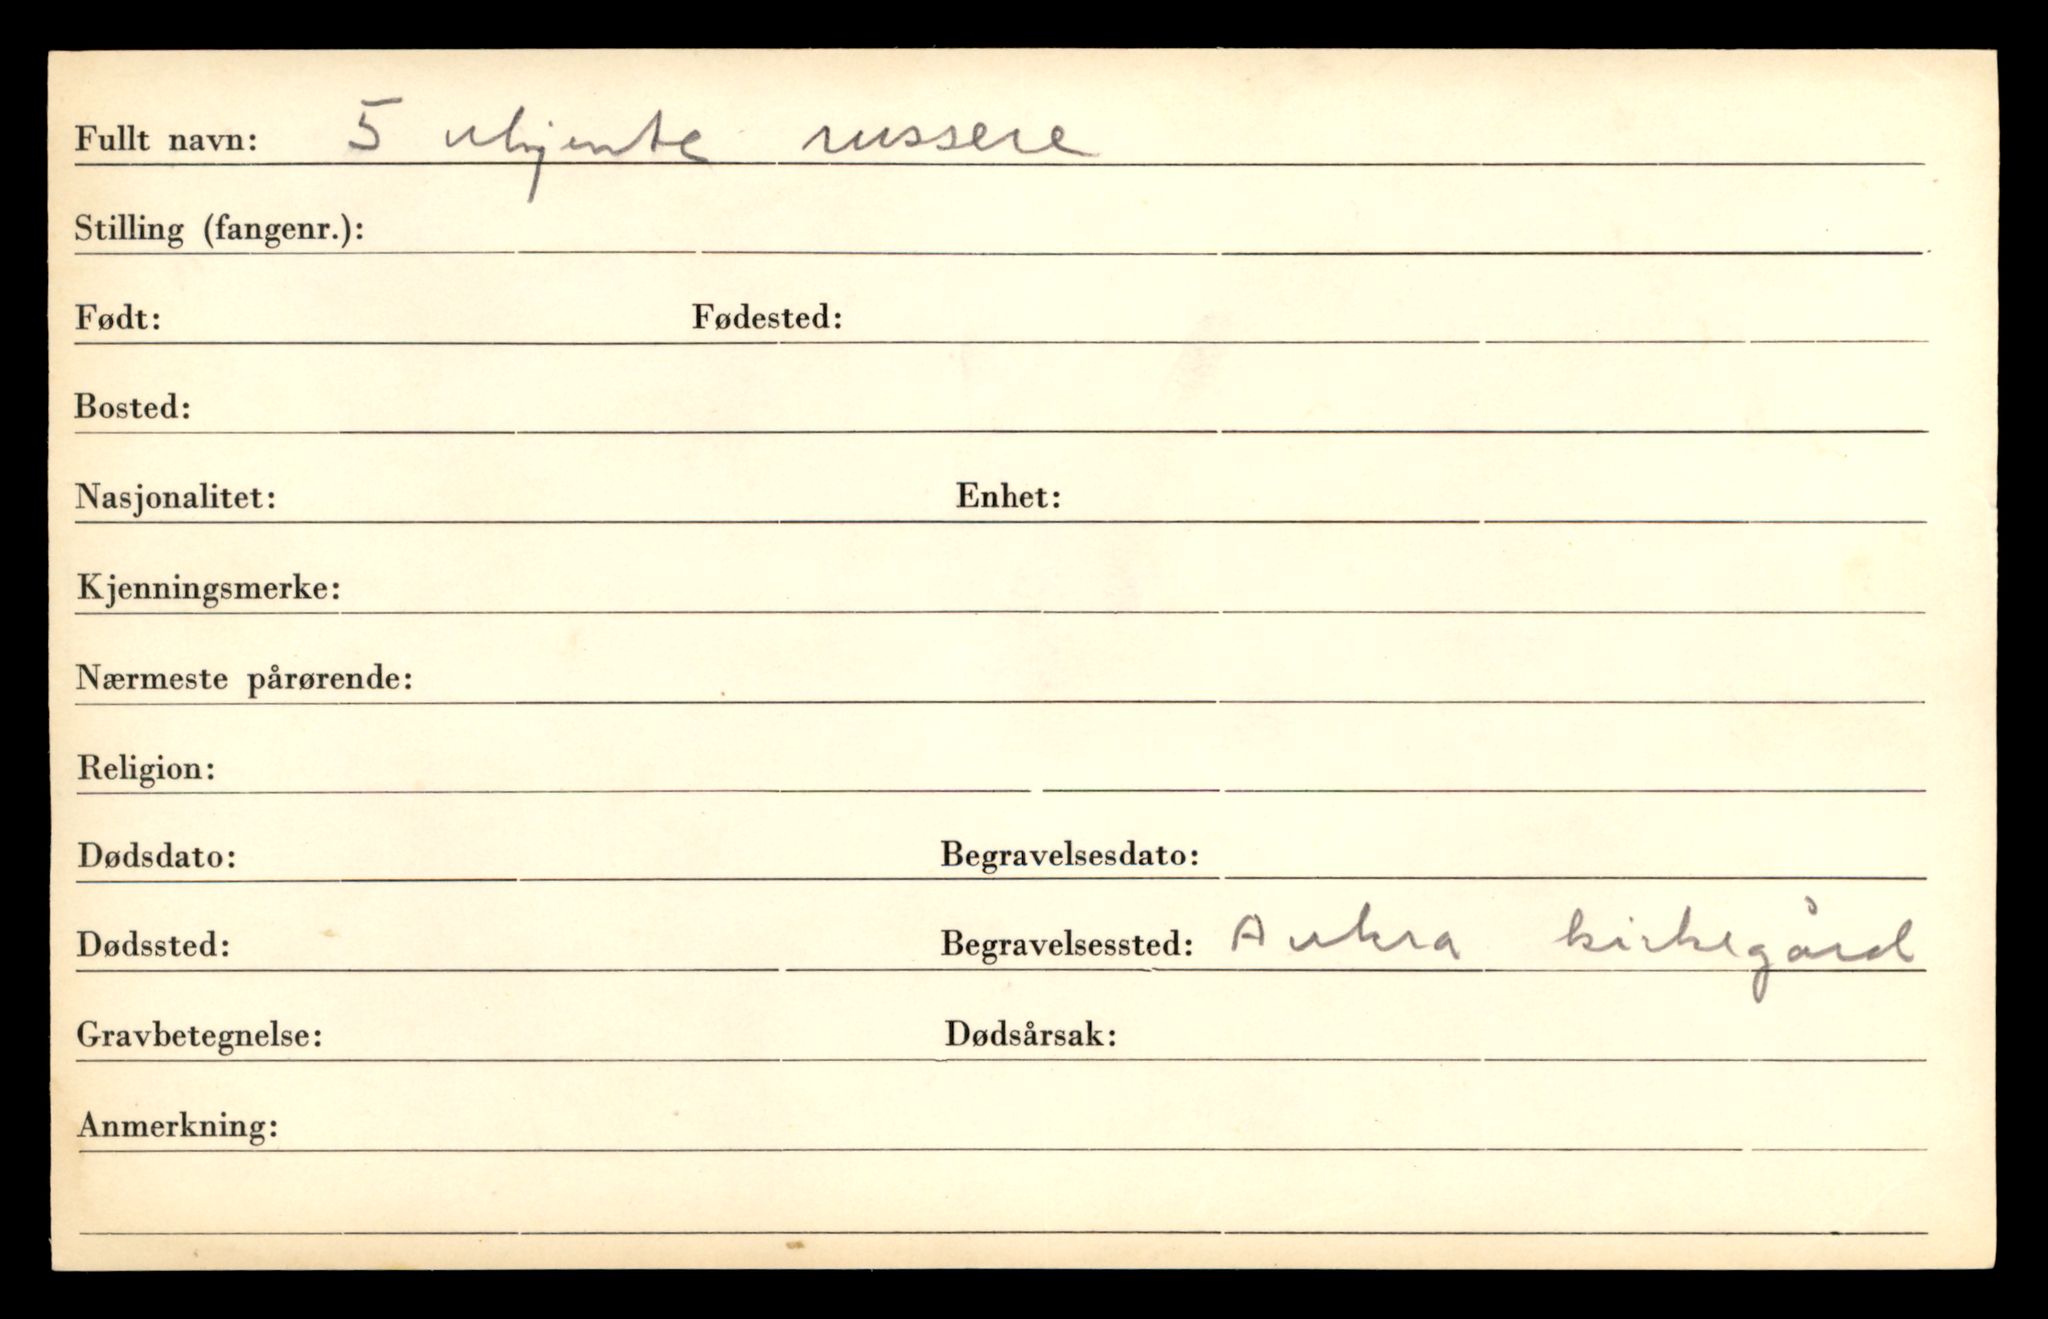 Fullt navn: 5 ukjente russere
Stilling (fangenr.):
Født: Fødested:
Bosted:
Nasjonalitet: Enhet:
Kjenningsmerke:
Nærmeste pårørende:
Religion:
Dødsdato: Begravelsesdato:
Dødssted: Begravelsessted: Aukra kirkegård
Gravbetegnelse: Dødsårsak:
Anmerkning: